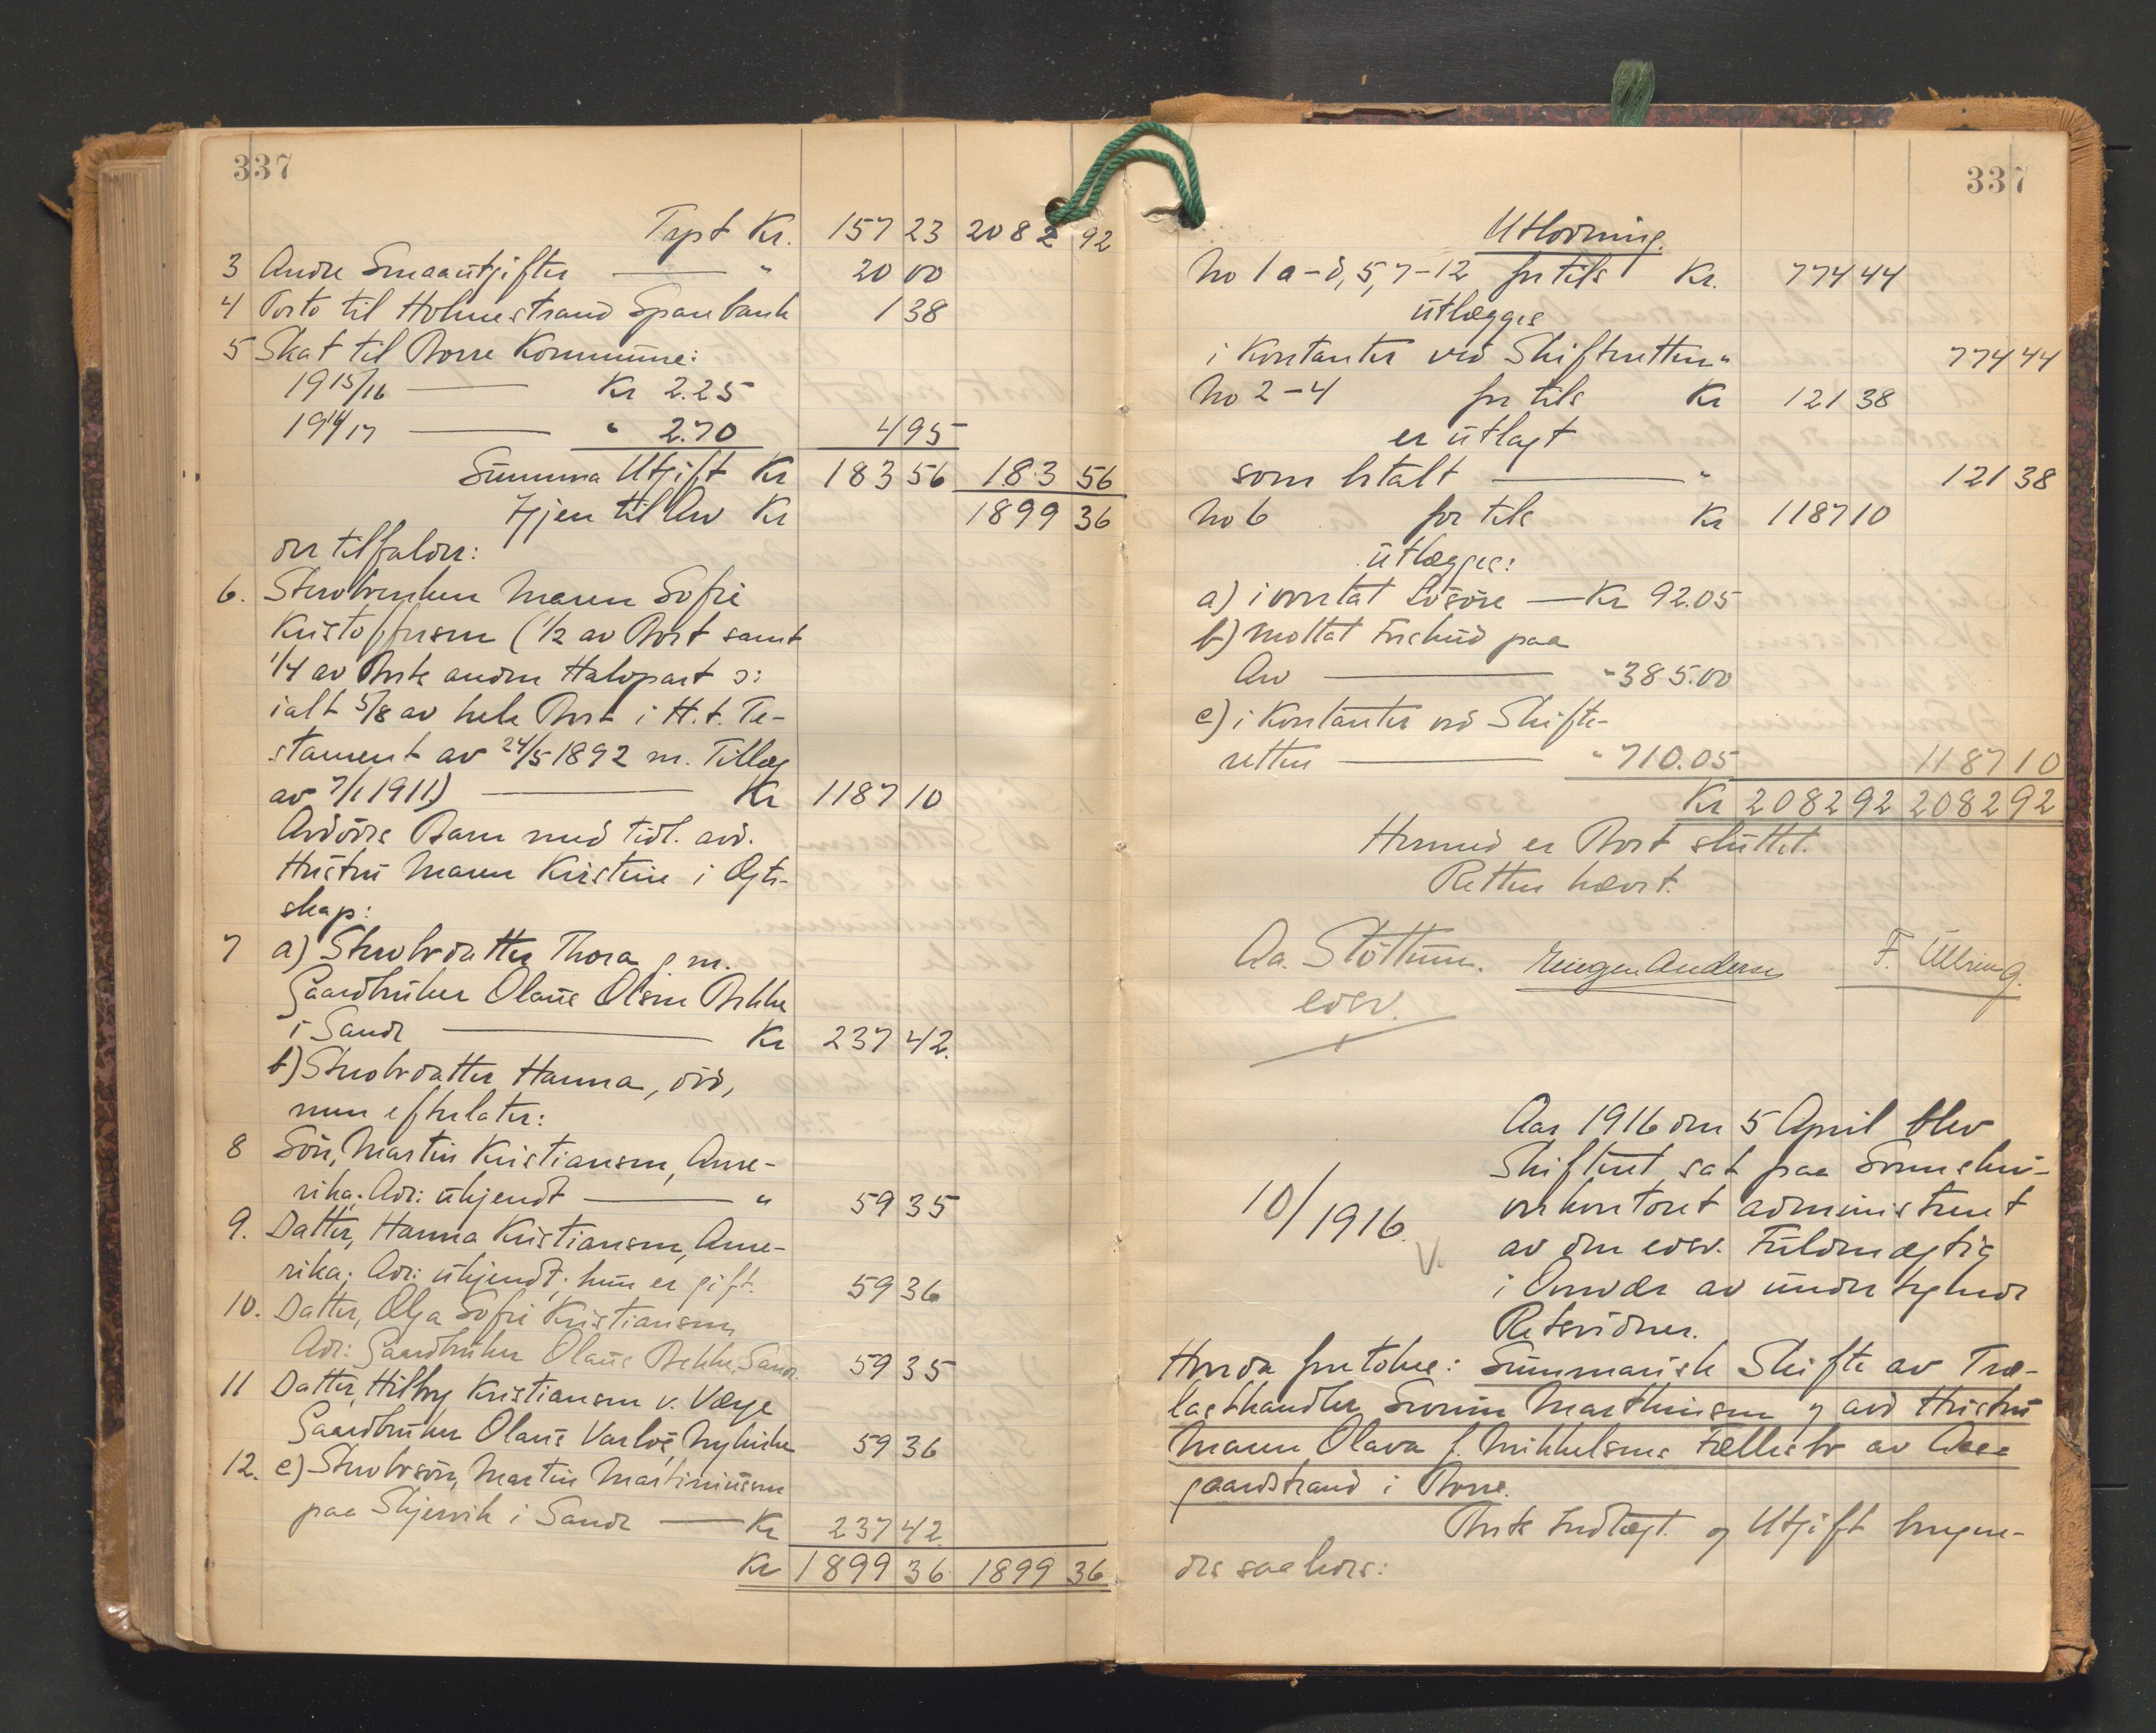 337
Trpt Kr. 157 23 2082 92
3 Andre Smaautgifter — " 20 00
4 Porto til Holmestrand Sparebank 1 38
5 Skat til Borre Kommune:
1915/16 — Kr 2.25
1916/17 — " 2.70 4 95
Summa Utgift Kr 183 56 183 56
Igjen til Arv Kr 1899 36
der tilfalder:
6. Stervboenken Maren Sofie
Kristoffersen (1/2 av Boet samt
1/4 av Boets anden Halvpart ɔ:
ialt 5/8 av hele Boet i H.t. Te-
stament av 24/5 1892 m. Tillæg
av 7/1 1911) — Kr 1187 10
Avdødes Barn med tidl. avd.
Hustru Maren Kirstine i Ægte-
skap:
7 a) Stervbodatter Thora g m.
Gaardbruker Olaus Olsen Bekke
i Sande — Kr 237 42.
b) Stervbodatter Hanna, død,
men efterlater:
8 Søn, Martin Kristiansen, Ame-
rika; Adr: ukjendt — " 59 35
9. Datter, Hanna Kristiansen, Ame-
rika; Adr: ukjendt; hun er gift. 59 36
10. Datter, Olga Sofie Kristiansen
Adr: Gaardbruker Olaus Bekke, Sande. 59 35
11 Datter, Kristiansen v. Værge
Gaardbruker Olaus Nykirke 59 36
12. c) Stervbosøn, Martin Martiniussen
paa Skjervik i Sande — Kr 237 42
Kr 1899 36 1899 36
337
Utlodning.
No 1 a-d, 5, 7-12 fortils Kr. 774 44
utlægges
i Kontanter ved Skifteretten " 774 44
No 2-4 fortils Kr 121 38
er utlagt
som betalt — " 121 38
No 6 fortils Kr 1187 10
utlægges:
a) i mottat Løsøre — Kr 92.05
b) mottat Forskud paa
Arv — " 385.00
c) i Kontanter ved Skifte-
retten — " 710.05 1187 10
Kr 2082 92 2082 92
Hermed er Boet sluttet.
Retten hævet.
Aa. Støttum. Andersen F. Ullring.
edsv.
10/1916.
V.
Aar 1916 den 5 April blev
Skifteret sat paa Sorenskri-
verkontoret administreret
av den edsv. Fuldmægtig
i Overvær av undertegnede
Retsvidner.
Hvorda foretokes: Summarisk Skifte av Træ-
lasthandler Severin Marthinsen og avd Hustru
Maren Olava f. Mikkelsens Fællesbo av Aas-
gaardstrand i Borre.
Boets Indtægt og Utgift bereg-
des saaledes: